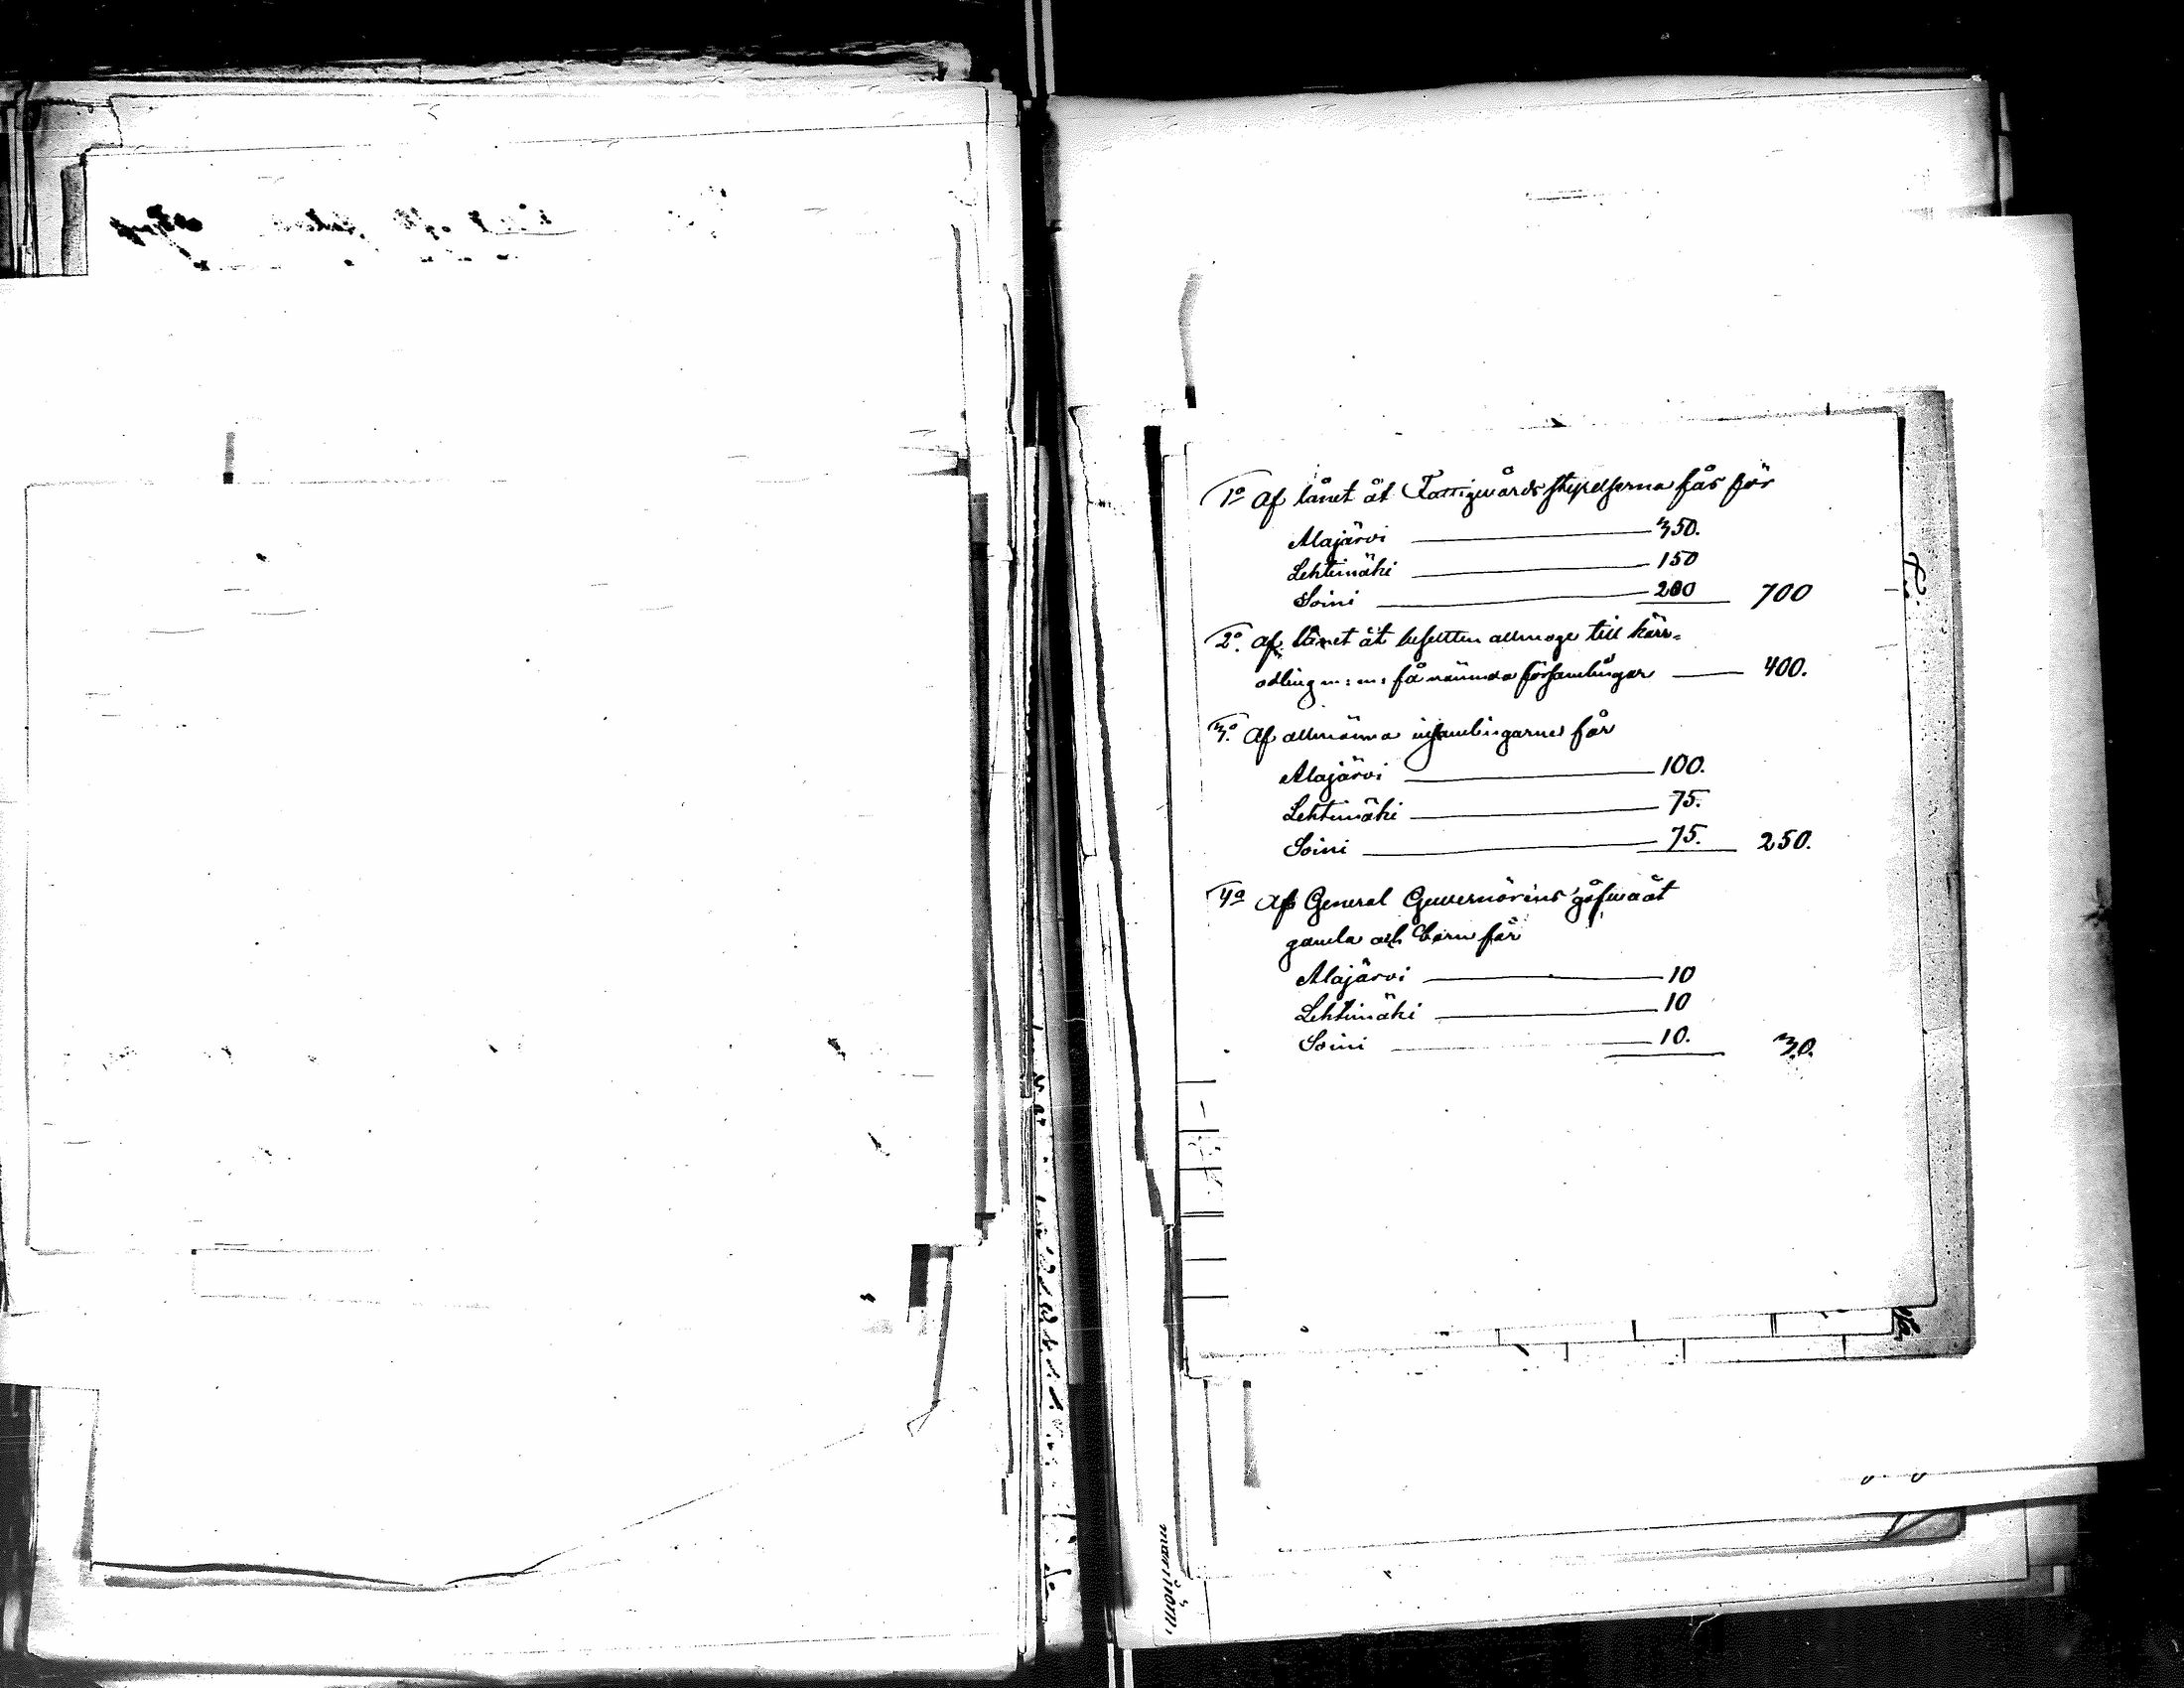 1º Af lånet åt Fattigvårdsstyrelserna fås för
Alajärvi 350.
Lehtimäki 150
Soini 200 700
2º. Af lånet åt besuttne allmoge till kärr=
odling m: m: få nämnda församlingar 400.
3º. Af allmänna insamlingarne får
Alajärvi 100.
Lehtimäki 75.
Soini 75. 250.
4º Af General Guvernörens gåfva åt
gamla och barn får
Alajärvi 10
Lehtimäki 10
Soini 10. 30.